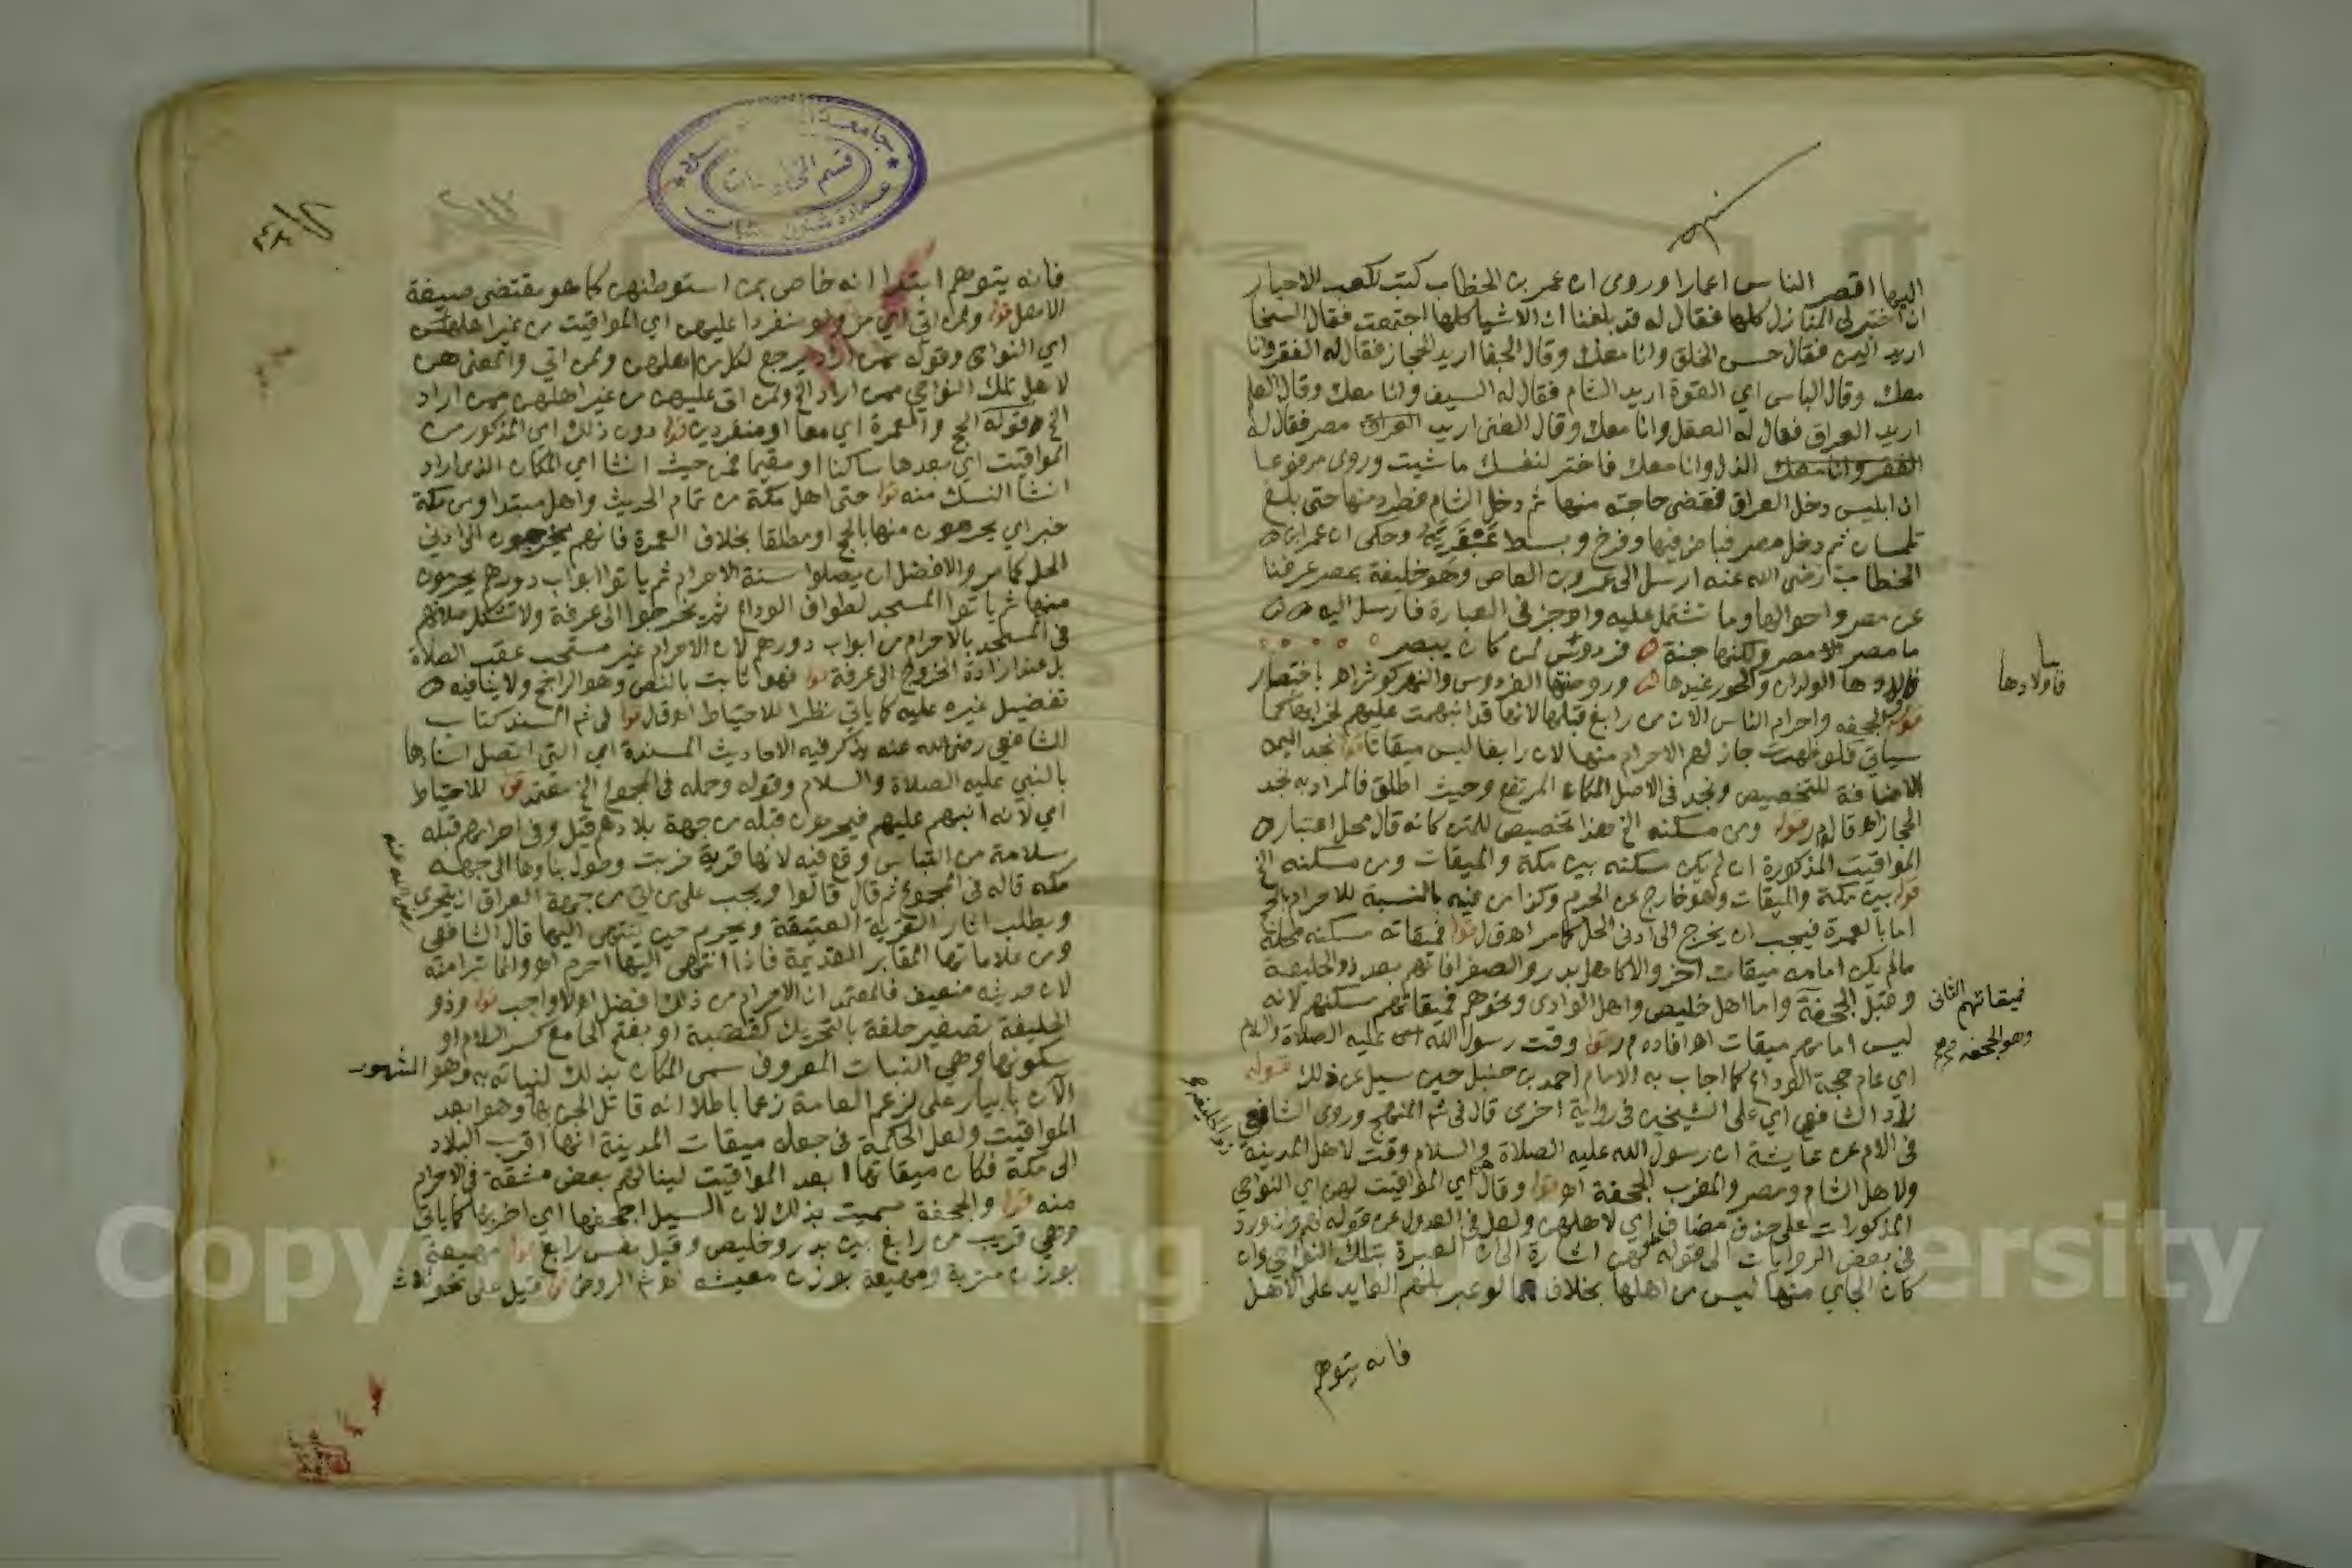 اليها اقصر الناس اعمارا وروى ان عمر بن الخطاب كتب لكعب الاحبار
ان اختر لي المنازل كلها فقال له قد بلغنا ان الاشيا كلها اجتمعت فقال السخا
اريد اليمن فقال حسن الخلق وانا معك وقال الجفا اريد الحجاز فقال له الفقر وانا
معك وقال الباس اي القوة اريد الشام فقال له السيف وانا معك وقال العلم
اريد العراق فقال له العقل وانا معك وقال الغنى اريد العراق مصر فقال له
الفقر وانا معك الذل وانا معك فاختر لنفسك ما شيت وروى مرفوعا
ان ابليس دخل العراق فقضى حاجته منها ثم دخل الشام فطرد منها حتى بلغ
تلمسان ثم دخل مصر فباض فيها وفرخ وبسط عبقريته وحكى ان عمر ابن
الخطاب رضى الله عنه ارسل الى عمرو بن العاص وهو خليفة بمصر عرفنا
عن مصر واحوالها وما تشتمل عليه واوجز في العبارة فارسل اليه
ما مصر مصر ولكنها جنة فردوس لمن كان يبصر
فاولادها الولدان والحور غيدها وروضتها الفردوس والنهر كوثر اهـ باختصار
قوله الجحفه واحرام الناس الان من رابغ قبلها لانها قد انبهمت عليهم لخرابها كما
سياتي فلو ظهرت جاز لهم الاحرام منها لان رابغا ليس ميقاتا قوله نجد اليمن
الاضافة للتخصيص ونجد في الاصل المكان المرتفع وحيث اطلق فالمراد به نجد
الحجاز اهـ ق ل وم ر قوله ومن مسكنه الخ هذا تخصيص للمتن كانه قال محل اعتبار
المواقيت المذكورة ان لم يكن مسكنه بين مكة والميقات ومن مسكنه الخ
قوله بين مكة والميقات وهو خارج عن الحرم وكذا من فيه بالنسبة للاحرام بالحج
اما بالعمرة فيجب ان يخرج الى ادنى الحل كما مر اهـ ق ل قوله فميقاته مسكنه محله
مالم يكن امامه ميقات اخر والا كاهل بدر والصفرا فانهم بعد ذو الحليفة
وقبل الجحفة واما اهل خليص واهل الوادى ونحوهم فميقاتهم مسكنهم لانه
ليس امامهم ميقات اهـ افاده م ر قوله وقت رسول الله عليه الصلاة والسلام
اي عام حجة الوداع كما اجاب به الامام احمد بن حنبل حين سيل عن ذلك قوله
زاد الشافعي اي على الشيخين في رواية اخرى قال في شم المنهج وروى الشافعي
في الام عن عايشة ان رسول الله عليه الصلاة والسلام وقت لاهل المدينة
ولاهل الشام ومصر والمغرب الجحفة اهـ قوله وقال هن اي المواقيت لهن اي النواحي
المذكورات على حذف مضاف اي لاهلهن ولعل في العدول عن قوله لهم وان ورد
في بعض الروايات الى قوله لهن اشارة الى ان العبرة بتلك النواحي وان
كان الجاي منها ليس من اهلها بخلاف ما لو عبر بلهم العايد على الاهل
فانه يتوهم
فاولادها
فميقاتهم الثاني
وهو الجحفه
ذو الحليفه
فانه يتوهم ابتدا انه خاص بمن استوطنهن كما هو مقتضى صيغة
الاصل قوله ولمن اتى اي مر ولو منفردا عليهن اي المواقيت من غير اهلهن
اي النواحي وقوله ممن اراد يرجع لكل من اهلهن ولمن اتى والمعنى هن
لاهل تلك النواحي ممن اراد الخ ولمن اتى عليهن من غير اهلهن ممن اراد
الخ وقوله الحج والعمرة اي معا او منفردين قوله دون ذلك اي المذكور من
المواقيت اي بعدها ساكنا او مقيما فمن حيث انشا اي المكان الذي اراد
انشا النسك منه قوله حتى اهل مكة من تمام الحديث واهل مبتدا ومن مكة
خبر اي يحرمون منها بالحج او مطلقا بخلاف العمرة فانهم يخرجون الى ادنى
الحل كما مر والافضل ان يصلوا سنة الاحرام ثم ياتوا ابواب دورهم يحرمون
منها ثم ياتوا المسجد لطواف الوداع ثم يخرجوا الى عرفة ولا تشكل صلاتهم
في المسجد بالاحرام من ابواب دورهم لان الاحرام غير مستحب عقب الصلاة
بل عند ارادة الخروج الى عرفة قوله فهو ثابت بالنص وهو الراجح ولا ينافيه
تفضيل غيره عليه كما ياتي نظرا للاحتياط اهـ ق ل قوله في شم المسند كتاب
للشافعي رضى الله عنه يذكر فيه الاحاديث المسندة اي التي اتصل اسنادها
بالنبي عليه الصلاة والسلام وقوله وحمله في المجموع الخ معتمد قوله للاحتياط
اي لانه انبهم عليهم فيحرمون قبله من جهة بلادهم قيل وفي احرامهم قبله
سلامة من التباس وقع فيه لانها قرية خربت وحول بناوها الى جهة
مكه قاله في المجموع ثم قال قالوا ويجب على من اتى من جهة العراق ان يتحرى
ويطلب اثار القرية العتيقة ويحرم حين ينتهى اليها قال الشافعي
ومن علاماتها المقابر القديمة فاذا انتهى اليها احرم اهـ وانما تبرا منه
لان حديثه ضعيف فالمعتمد ان الاحرام من ذلك افضل لا واجب قوله وذو
الحليفة تصغير حلفة بالتحريك كقصبة او بفتح الحا مع كسر اللام او
سكونها وهي النبات المعروف سمى المكان بذلك لنباته به وهو المشهور
الآن بابيار على لزعم العامة زعما باطلا انه قاتل الجن بها وهو ابعد
المواقيت ولعل الحكمة في جعله ميقات المدينة انها اقرب البلاد
الى مكة فكان ميقاتها ابعد المواقيت لينالهم بعض مشقة في الاحرام
منه قوله والجحفة سميت بذلك لان السيل اجحفها اي اخربها كما ياتي
وهي قريب من رابغ بين بدر وخليص وقيل نفس رابغ قوله مهيعة
بوزن مترية ومهيعة بوزن معيشه اهـ شم الروض قوله قيل على نحو ثلاث